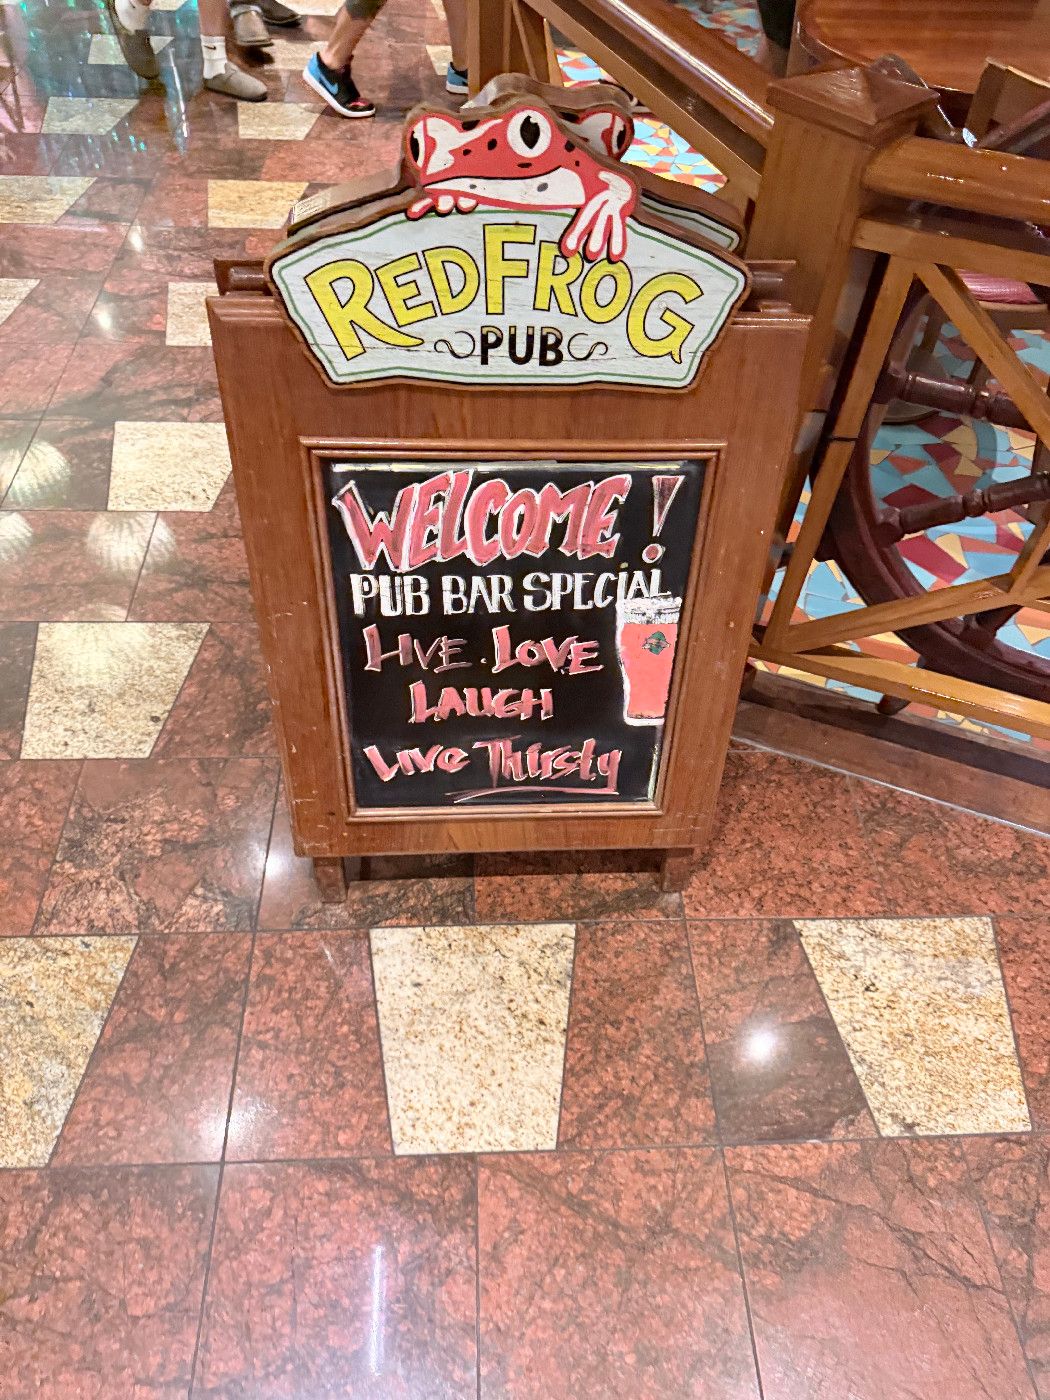 REDFROG
PUB
WELCOME!
PUB BAR SPECIAL
LIVE. LOVE
LAUGH
Live Thirsty